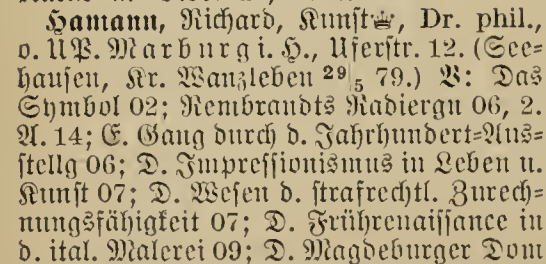 Hamann, Richard, Kunst♕, Dr. phil.,
o. UP. Marburg i. H., Uferstr. 12. (See=
hausen, Kr. Wanzleben 29/5 79.) V: Das
Symbol 02; Rembrandts Radiergn 06, 2.
A. 14; E. Gang durch d. Jahrhundert=Aus=
stellg 06; D. Impressionismus in Leben u.
Kunst 07; D. Wesen d. strafrechtl. Zurech=
nungsfähigkeit 07; D. Frührenaissance in
d. ital. Malerei 09; D. Magdeburger Dom